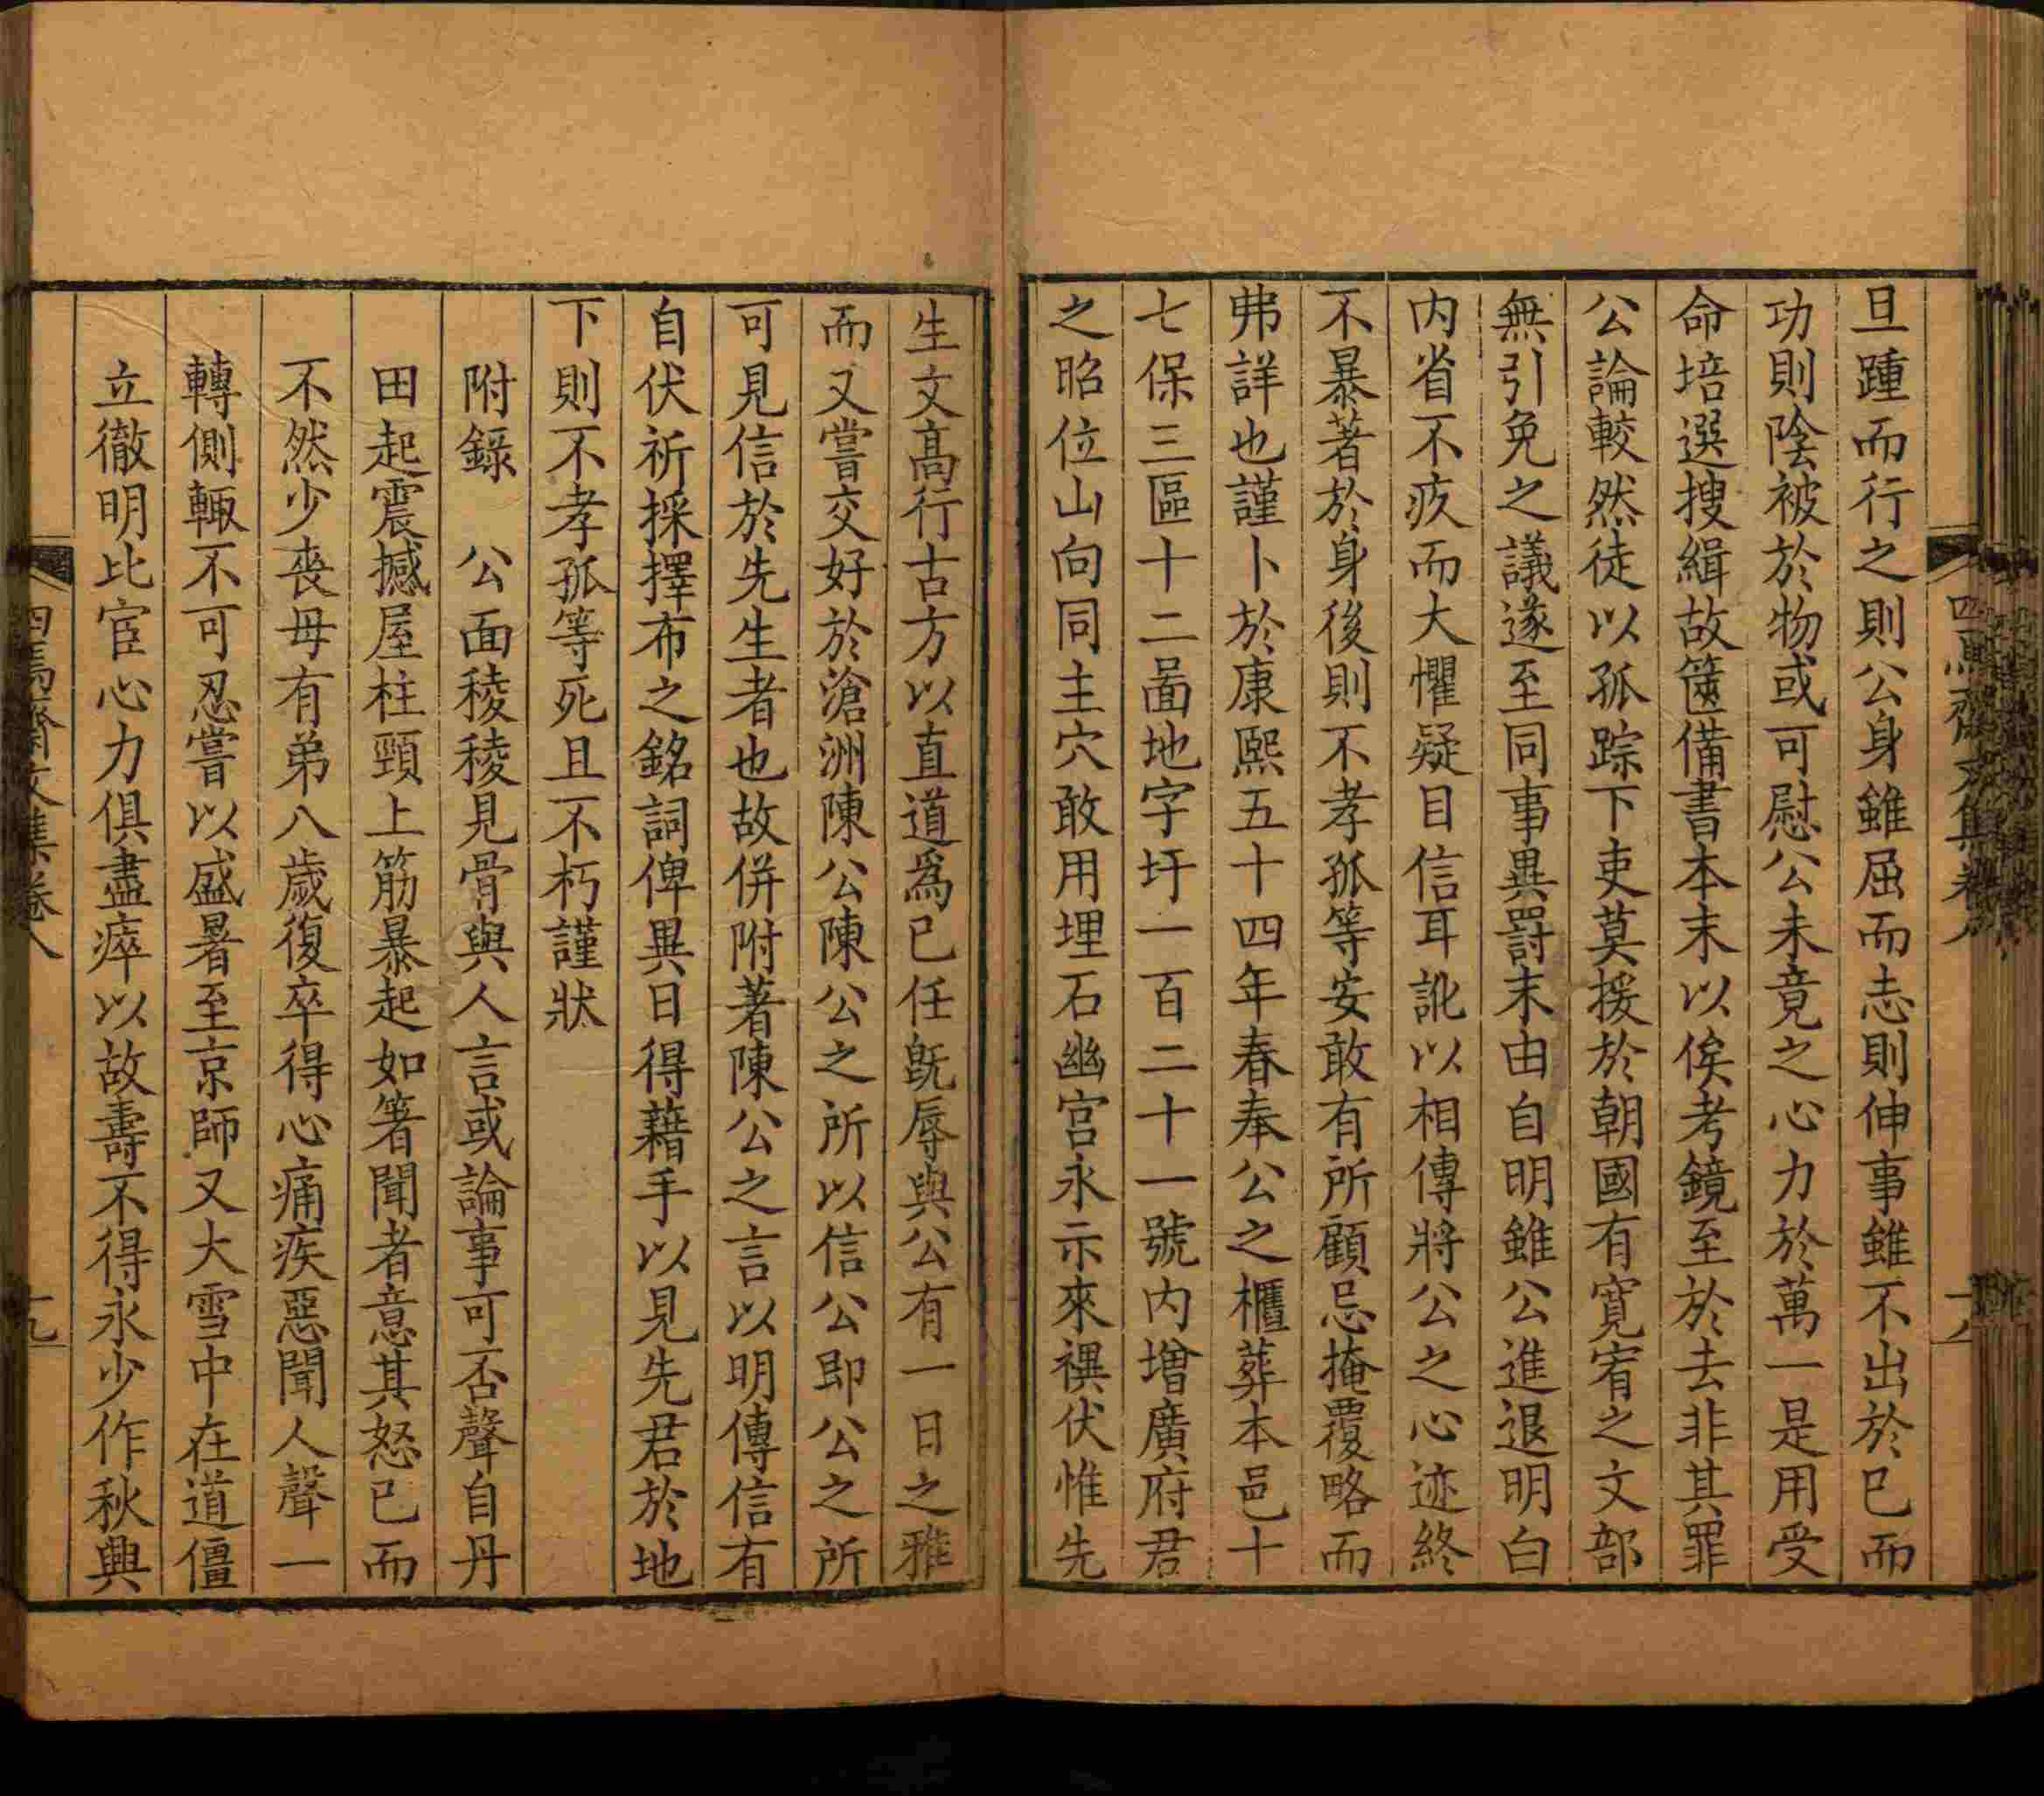 四焉齋文集卷八
旦踵而行之則公身雖屈而志則伸事雖不出於已而
功則陰被於物或可慰公未竟之心力於萬一是用受
命培選搜緝故篋備書本末以俟考鏡至於去非其罪
公論較然徒以孤踪下吏莫援於朝國有寛宥之文部
無引免之議遂至同事異罸末由自明雖公進退明白
内省不疚而大懼疑目信耳訛以相傳將公之心迹終
不暴著於身後則不孝孤等安敢有所顧忌掩覆略而
弗詳也謹卜於康熙五十四年春奉公之櫃葬本邑十
七保三區十二啚地字圩一百二十一號内增廣府君
之昭位山向同主穴敢用埋石幽宫永示來禩伏惟先
生文高行古方以直道爲已任旣辱與公有一日之雅
而又嘗交好於滄洲陳公陳公之所以信公即公之所
可見信於先生者也故併附著陳公之言以明傳信有
自伏祈採擇布之銘詞俾異日得藉手以見先君於地
下則不孝孤等死且不朽謹狀
附錄　公面稜稜見骨與人言或論事可否聲自丹
田起震撼屋柱頸上筋暴起如箸聞者意其怒已而
不然少喪母有弟八歲復卒得心痛疾惡聞人聲一
轉側輙不可忍嘗以盛暑至京師又大雪中在道僵
立徹明比宦心力俱盡瘁以故壽不得永少作秋興
四焉齋文集卷八
十九